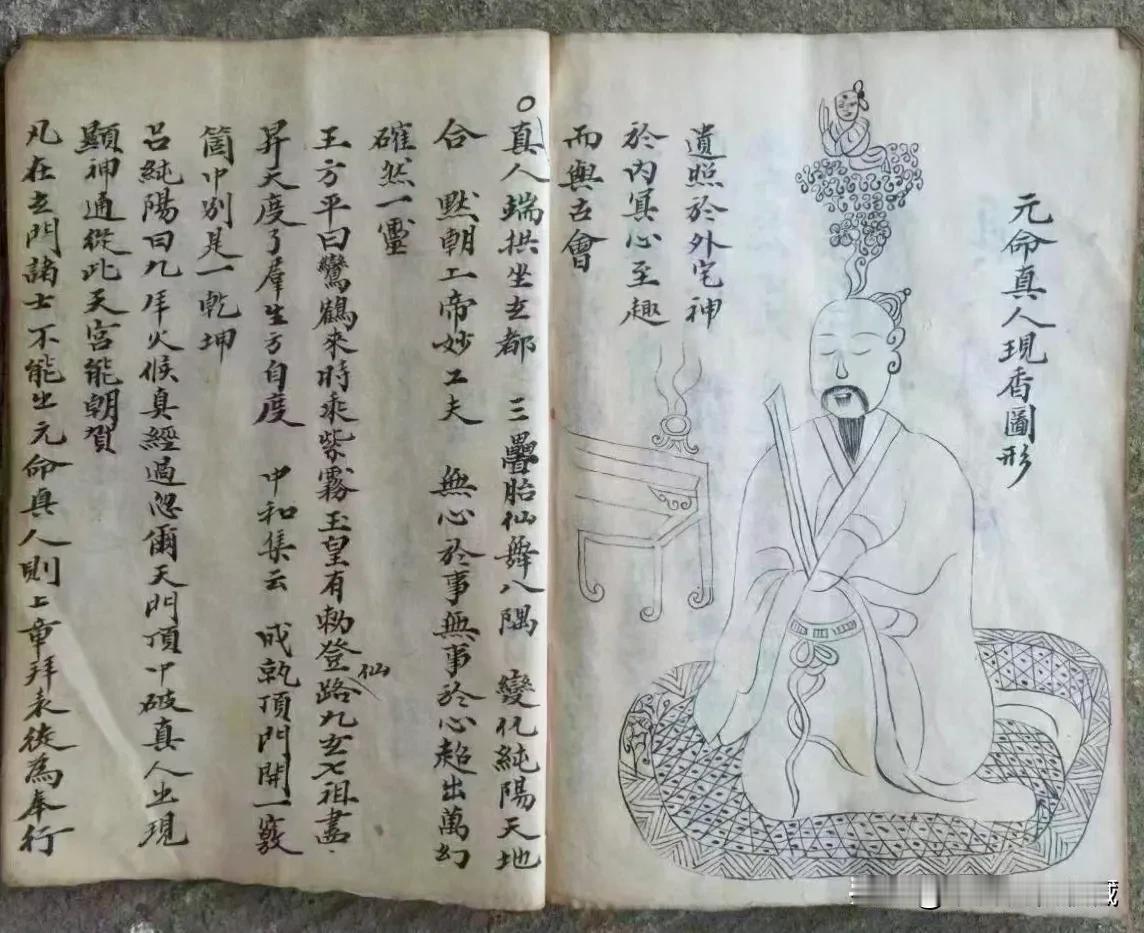 元命真人現香圖形
遺照於外宅神
於内冥心至趣
而與古會
○真人端拱坐玄都 三疊胎仙舞八隅 變化純陽天地
合 默朝上帝妙工夫 無心於事無事於心超出萬幻
確然一靈
王方平曰鸞鶴來時乘紫霧玉皇有勅登仙路九玄七祖盡
昇天度了羣生方自度 中和集云 成孰頂門開一竅
箇中別是一乾坤
呂純陽曰九年火候真經過忽爾天門頂中破真人出現
顯神通從此天宮能朝賀
凡在玄門諸士不能出元命真人則上章拜表徒為奉行